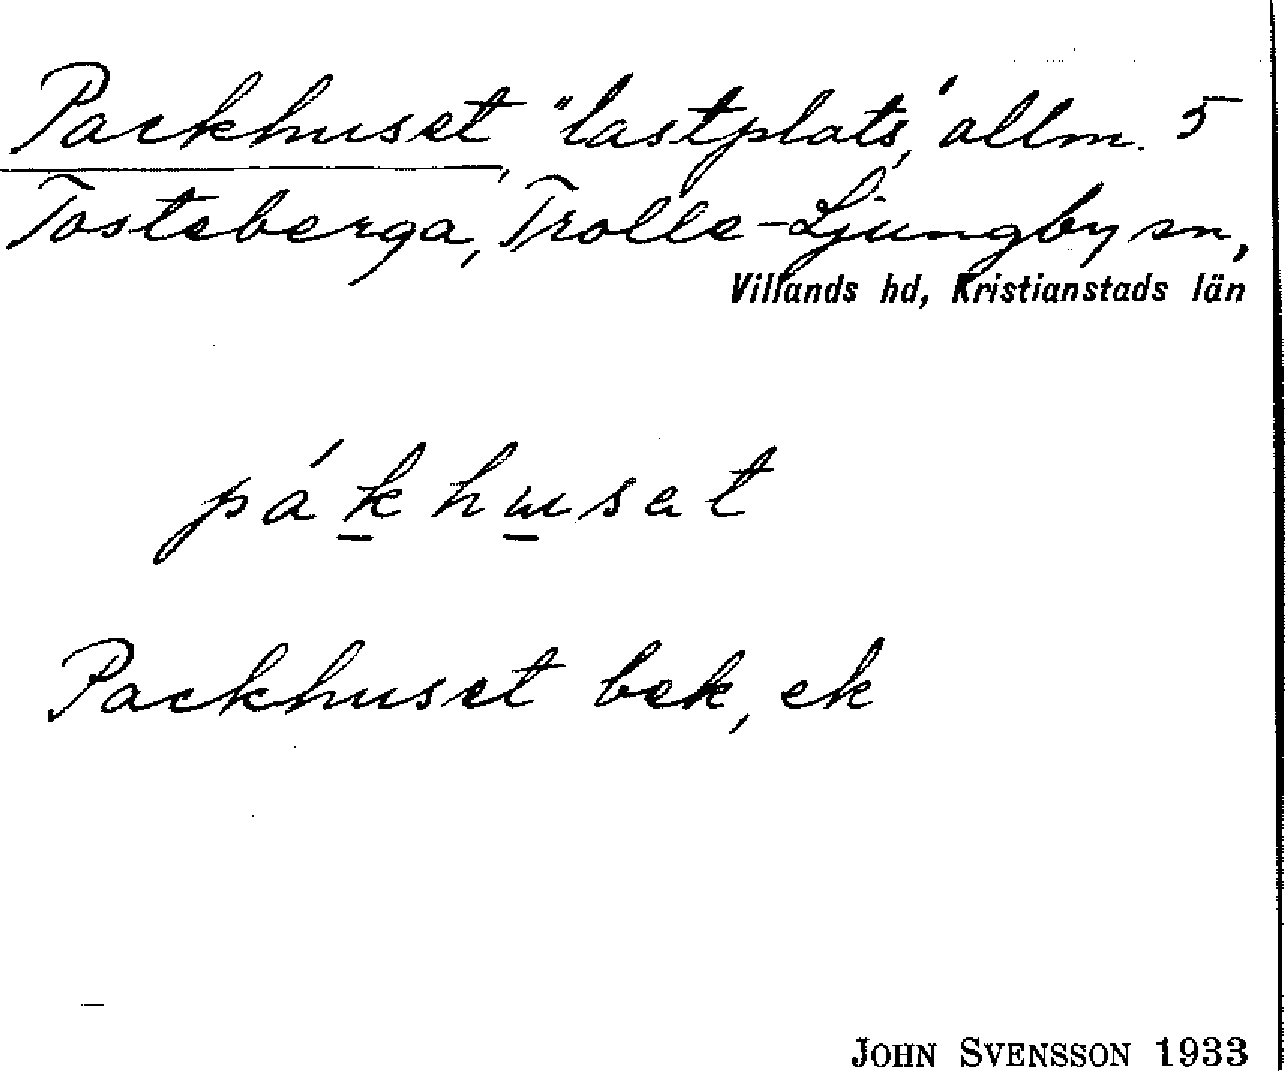 Packhuset, "lastplats," allm. 5
Tosteberga, Trolle-Ljungby sn,
Villands hd, Kristianstads län
pákhusat
Packhuset bek, ek
JOHN SVENSSON 1933